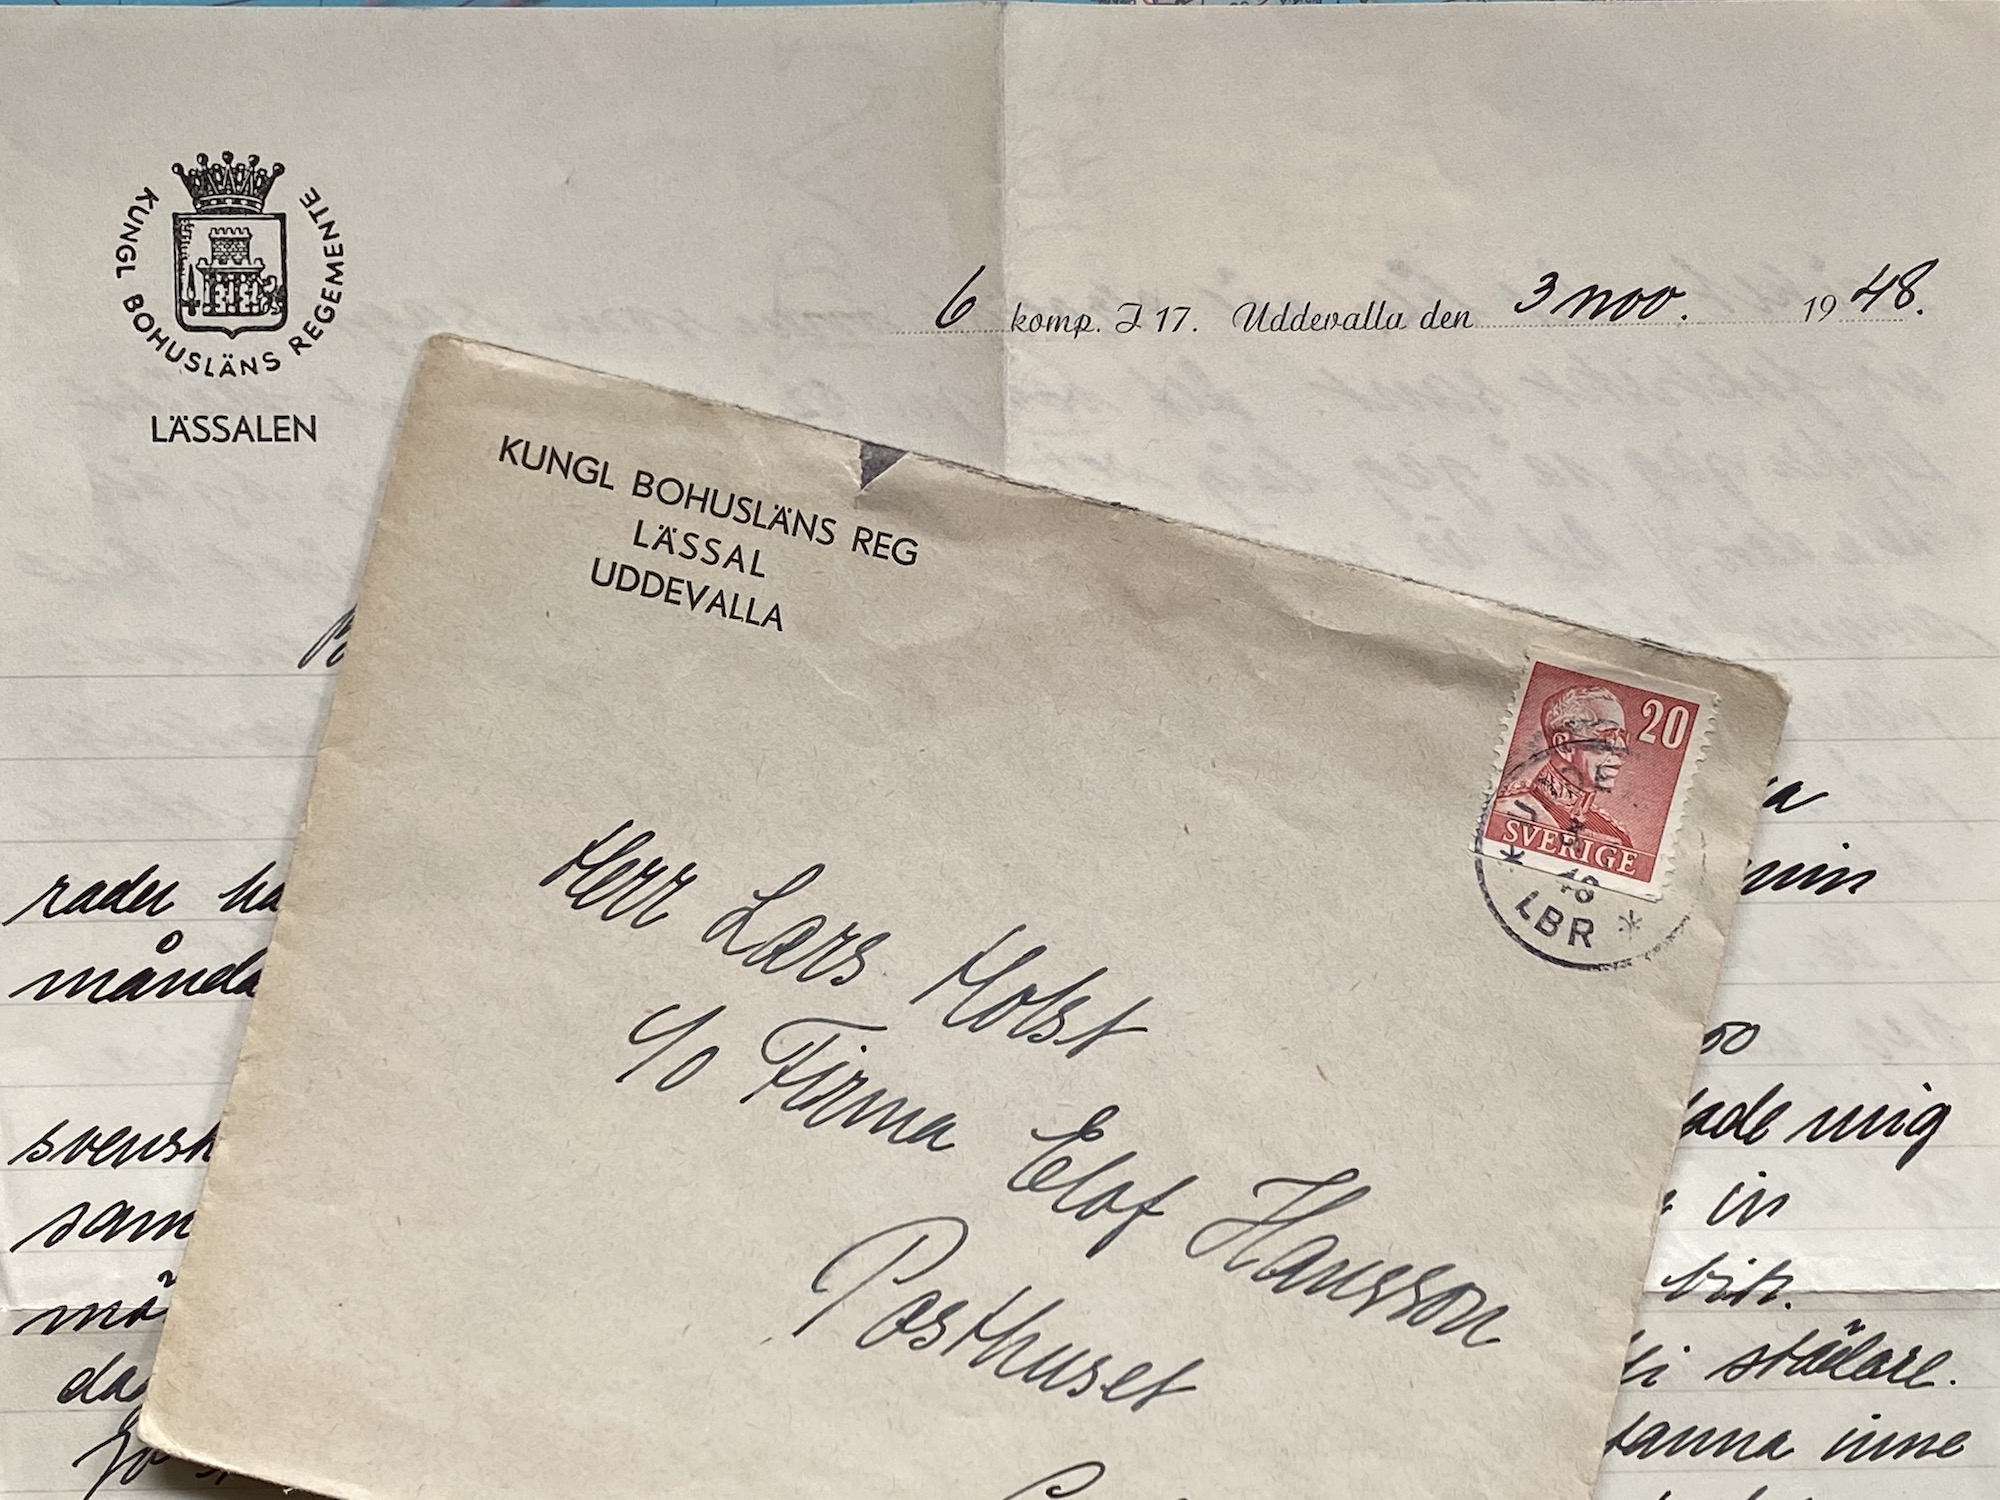 KUNGL BOHUSLÄNS REGEMENTE
LÄSSALEN
6 komp. I 17. Uddevalla den 3 nov. 1948.
KUNGL BOHUSLÄNS REG
LÄSSAL
UDDEVALLA
20
SVERIGE
48
LBR
Herr Lars Holst
c/o Firma Elof Hansson
Posthuset
rader ha
min
månda
svensk
ade mig
sam
in
må
da
ståare.
stanna inne